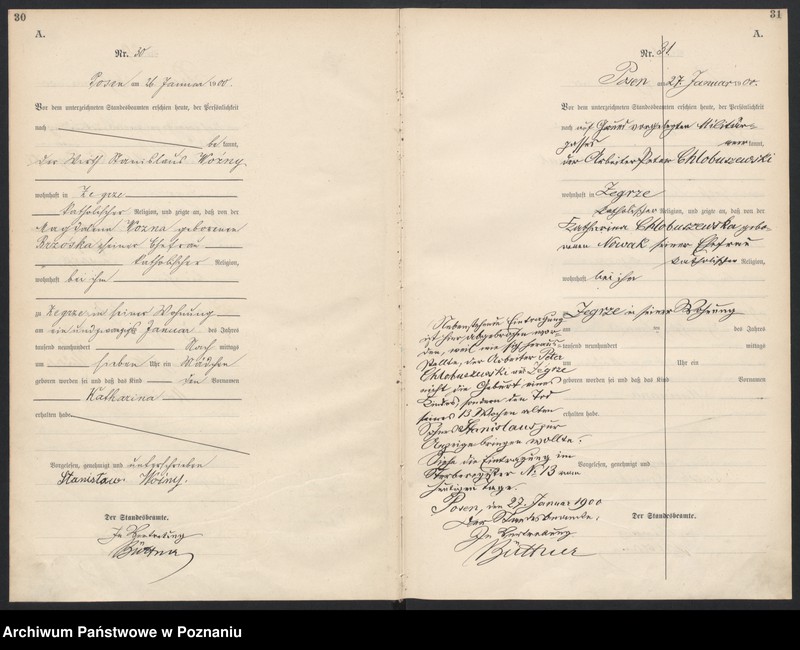 30
A.
Nr. 30
Posen am 26 Januar 1900.
Vor dem unterzeichneten Standesbeamten erschien heute, der Persönlichkeit
nach
be kannt,
der Wirth Stanislaus Woźny.
wohnhaft in Zegrze
katholischer Religion, und zeigte an, daß von der
Magdalena Wozna geborenen
Brzóska seiner Ehefrau
katholischer Religion,
wohnhaft bei ihm
zu Zegrze in seiner Wohnung
am ein und zwanzigsten Januar des Jahres
tausend neunhundert Nach mittags
um sieben Uhr ein Mädchen
geboren worden sei und daß das Kind den Vornamen
Katharina
erhalten habe.
Vorgelesen, genehmigt und unterschrieben
Stanisław Woźny.
Der Standesbeamte.
In Vertretung
Büttner
31
A.
Nr. 31
Posen am 27. Januar 1900.
Vor dem unterzeichneten Standesbeamten erschien heute, der Persönlichkeit
nach auf Grund vorgelegten Militär-
passes kannt,
der Arbeiter Peter Chlobuszewski
wohnhaft in Zegrze
katholischer Religion, und zeigte an, daß von der
Katharina Chlobuszewska gebo-
renen Nowak seiner Ehefrau
katholischer Religion,
wohnhaft bei ihm
Zegrze in seiner Wohnung
am ten des Jahres
tausend neunhundert mittags
um Uhr ein
geboren worden sei und daß das Kind Vornamen
erhalten habe.
Vorgelesen, genehmigt und
Der Standesbeamte.
Nebenstehende Eintragung
ist hier abgebrochen wor-
den, weil wie sich heraus-
stellte, der Arbeiter Peter
Chlobuszewski aus Zegrze
nicht die Geburt eines
Kindes, sondern den Tod
seines 13 Wochen alten
Sohns Stanislaus zur
Anzeige bringen wollte.
Siehe die Eintragung im
Sterberegister No 13 vom
heutigen Tage.
Posen, den 27. Januar 1900
Der Standesbeamte:
In Vertretung
Büttner
Archiwum Państwowe w Poznaniu